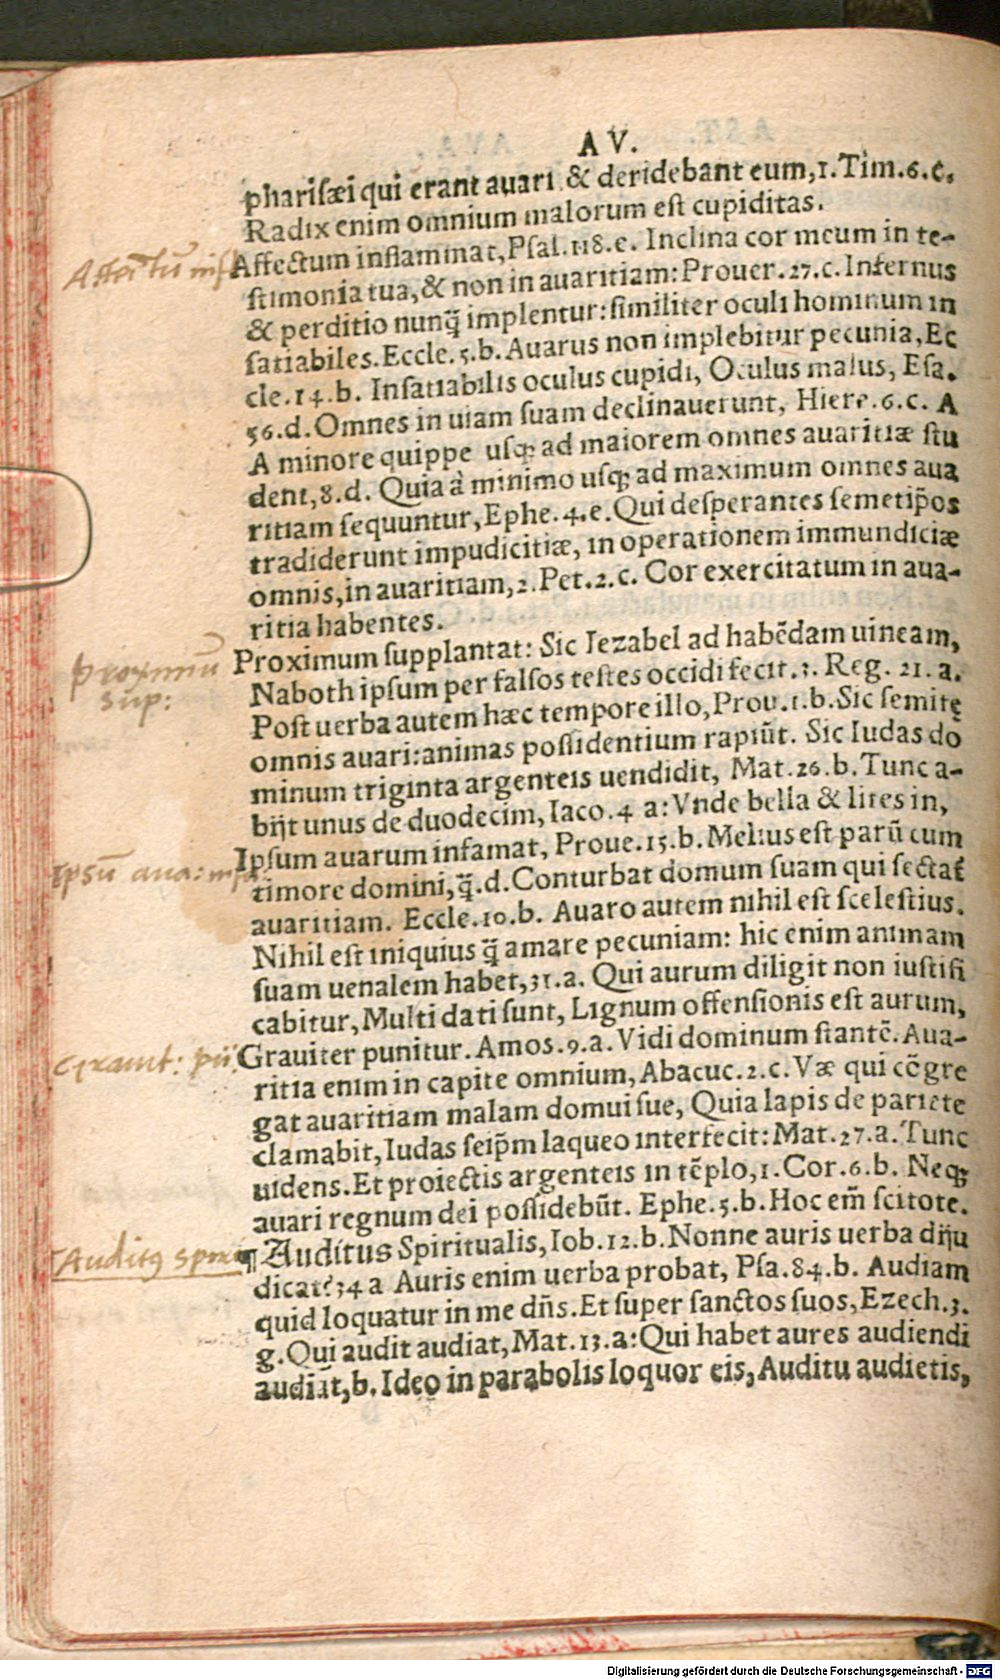 AV.
phariſæi qui erant auari & deridebant eum, 1. Tim. 6. c.
Radix enim omnium malorum eſt cupiditas.
Affectũ infl
Affectum inflammat, Pſal. 118. e. Inclina cor meum in te-
ſtimonia tua, & non in auaritiam: Prouer. 27. c. Infernus
& perditio nunq̃ implentur: ſimiliter oculi hominum in
ſatiabiles. Eccle. 5. b. Auarus non implebitur pecunia, Ec
cle. 14. b. Inſatiabilis oculus cupidi, Oculus malus, Eſa.
56. d. Omnes in uiam ſuam declinauerunt, Hiere. 6. c. A
A minore quippe uſq; ad maiorem omnes auaritiæ ſtu
dent, 8. d. Quia à minimo uſq; ad maximum omnes aua
ritiam ſequuntur, Ephe. 4. e. Qui deſperantes ſemetip̃os
tradiderunt impudicitiæ, in operationem immundiciæ
omnis, in auaritiam, 2. Pet. 2. c. Cor exercitatum in aua-
ritia habentes.
proximũ
sup:
Proximum ſupplantat: Sic Iezabel ad habẽdam uineam,
Naboth ipſum per falſos teſtes occidi fecit. 3. Reg. 21. a.
Poſt uerba autem hæc tempore illo, Prou. 1. b. Sic ſemitę
omnis auari: animas poſſidentium rapiũt. Sic Iudas do
minum triginta argenteis uendidit, Mat. 26. b. Tunc a-
bijt unus de duodecim, Iaco. 4 a: Vnde bella & lites in,
Ipsũ aua: infa:
Ipſum auarum infamat, Proue. 15. b. Melius eſt parũ cum
timore domini, q̃. d. Conturbat domum ſuam qui ſectat̃
auaritiam. Eccle. 10. b. Auaro autem nihil eſt ſceleſtius.
Nihil eſt iniquius q̃ amare pecuniam: hic enim animam
ſuam uenalem habet, 31. a. Qui aurum diligit non iuſtifi
cabitur, Multi dati ſunt, Lignum offenſionis eſt aurum,
Grauit: pũ:
Grauiter punitur. Amos. 9. a. Vidi dominum ſtantẽ. Aua-
ritia enim in capite omnium, Abacuc. 2. c. Væ qui cõgre
gat auaritiam malam domui ſue, Quia lapis de pariete
clamabit, Iudas ſeip̃m laqueo interfecit: Mat. 27. a. Tunc
uidens. Et proiectis argenteis in tẽplo, 1. Cor. 6. b. Neq;
auari regnum dei poſſidebũt. Ephe. 5. b. Hoc em̃ ſcitote.
Auditus spiri
¶ Auditus Spiritualis, Iob. 12. b. Nonne auris uerba diju
dicat? 34 a Auris enim uerba probat, Pſa. 84. b. Audiam
quid loquatur in me dñs. Et ſuper ſanctos ſuos, Ezech. 3.
g. Qui audit audiat, Mat. 13. a: Qui habet aures audiendi
audiãt, b. Ideo in parabolis loquor eis, Auditu audietis,
Digitalisierung gefördert durch die Deutsche Forschungsgemeinschaft - DFG